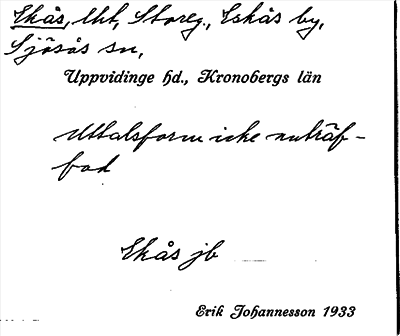 Ekås, lht, Storeg., Eskås by,
Sjösås sn,
Uppvidinge hd., Kronobergs län
Uttalsform icke anträf-
fad
Ekås jb
Erik Johannesson 1933